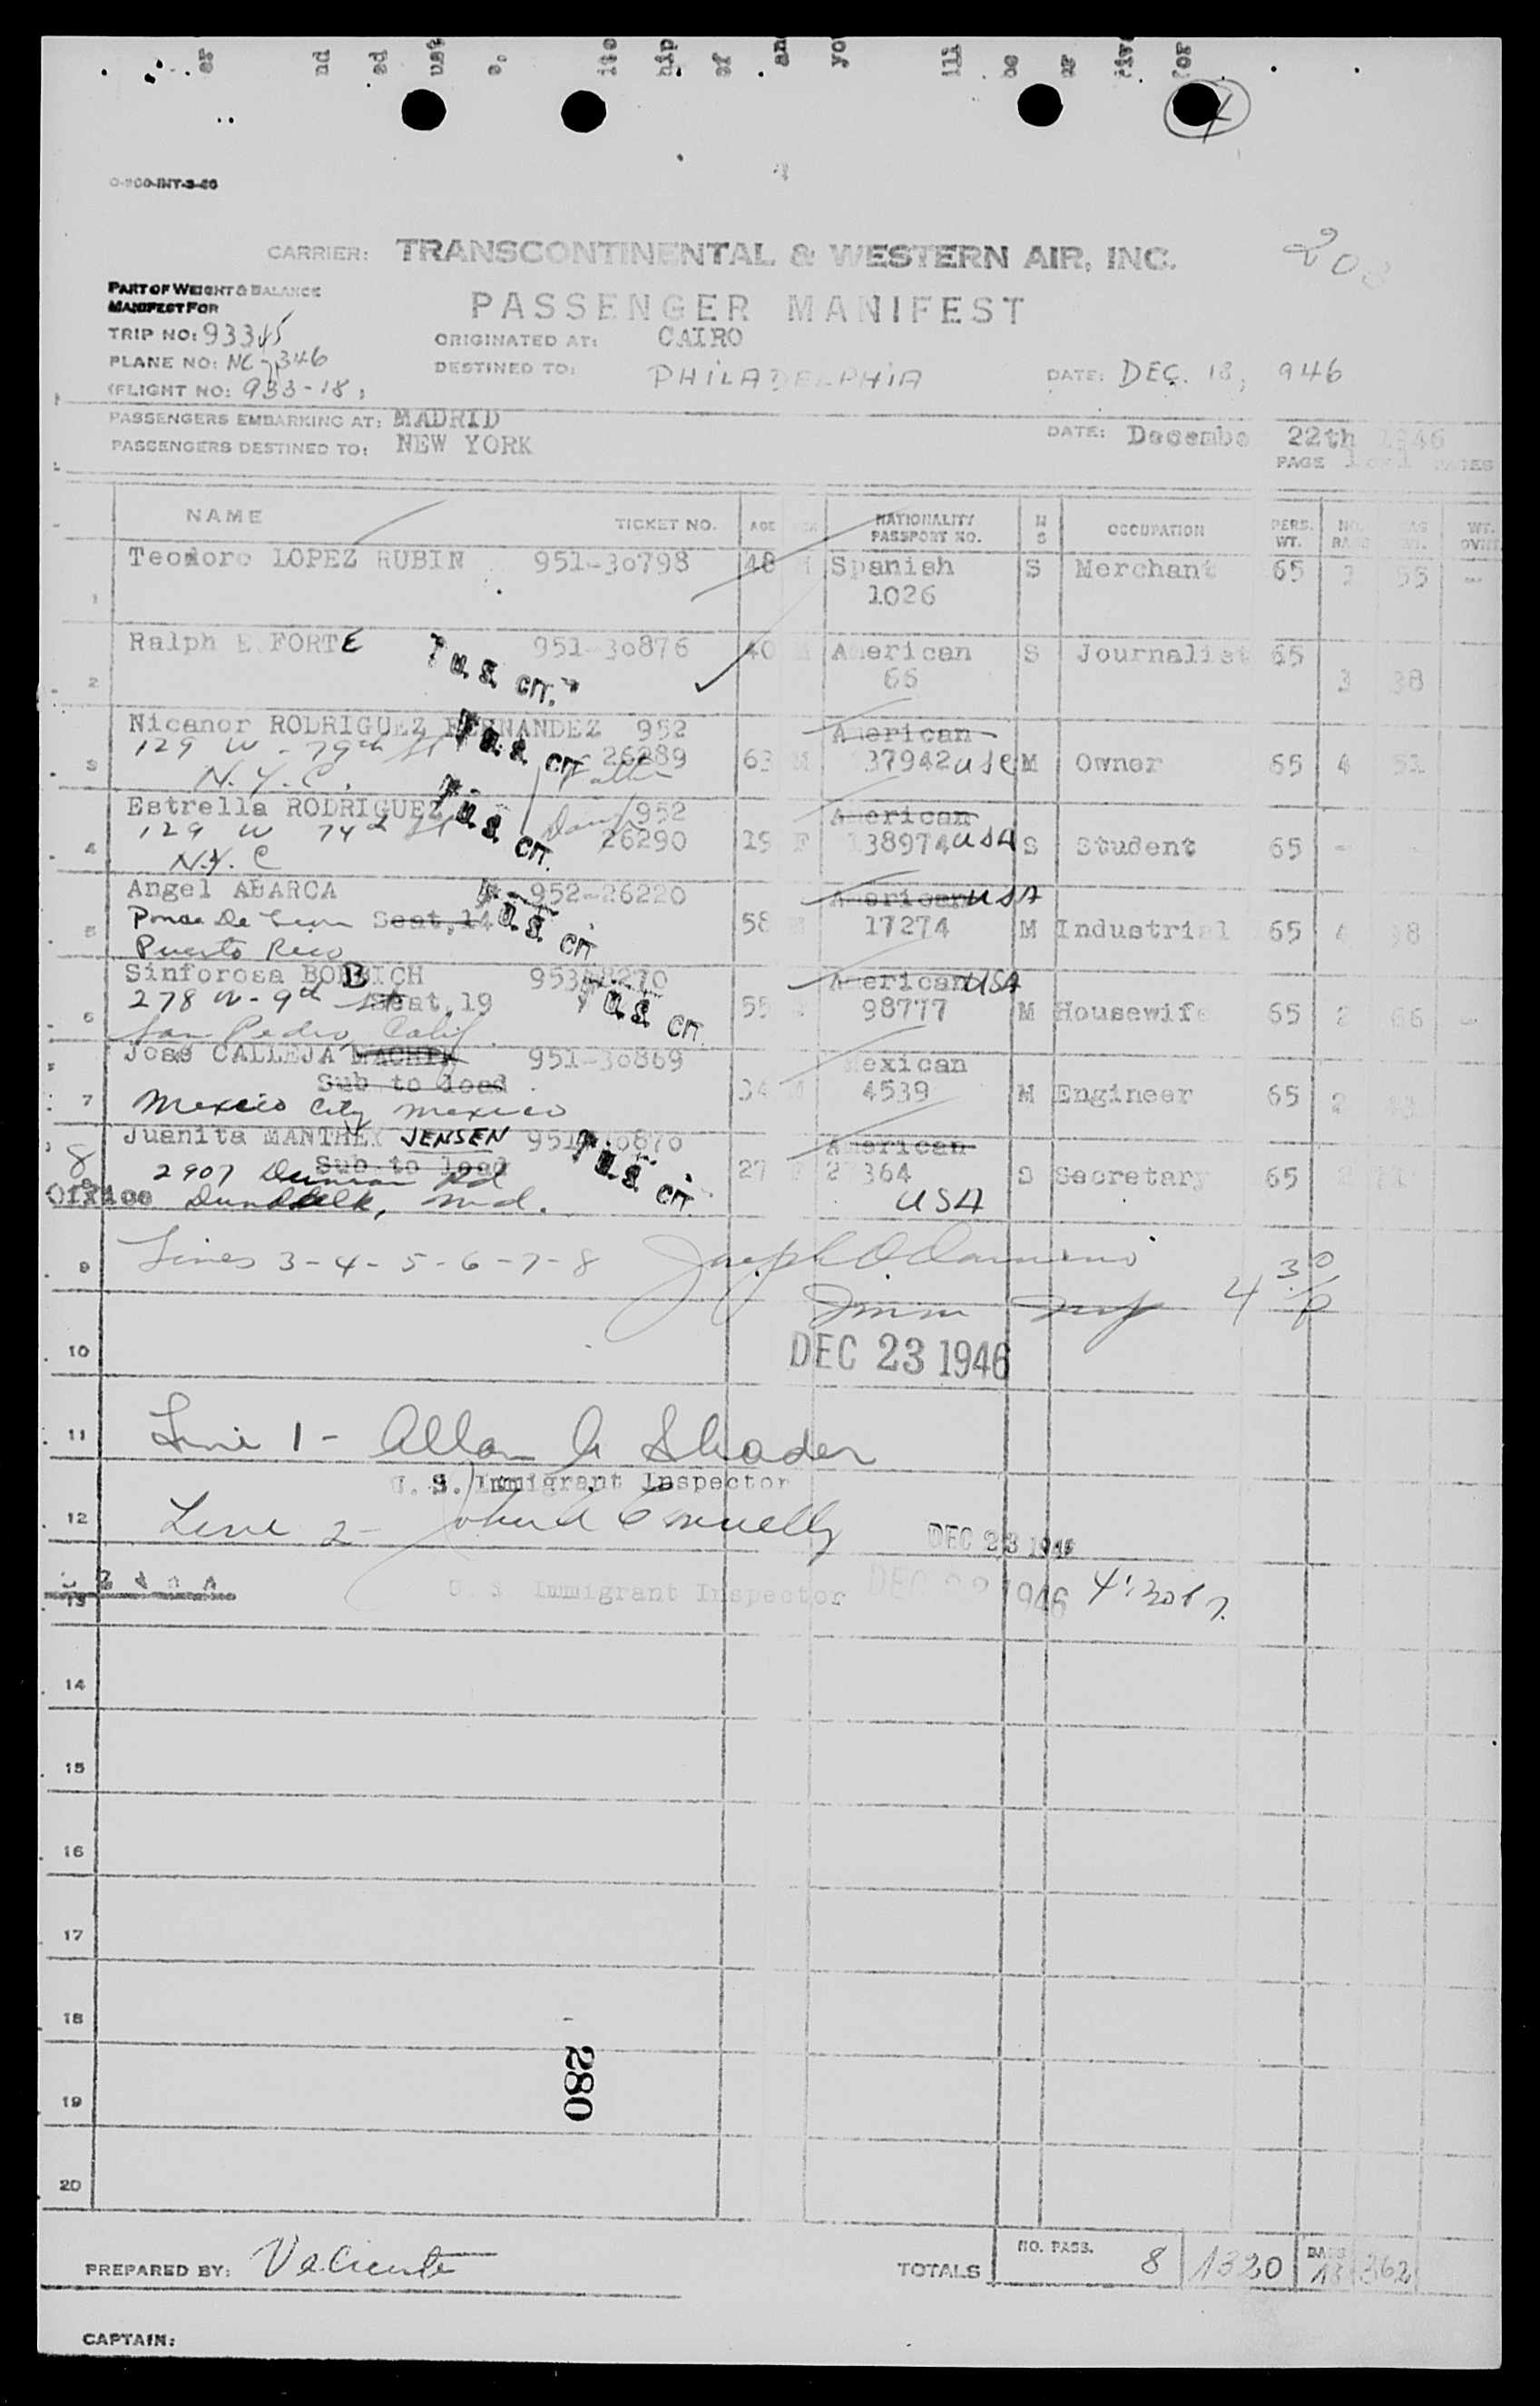 CARRIER: TRANSCONTINENTAL & WESTERN AIR, INC.
PART OF WEIGHT & BALANCE
MANIFEST FOR
PASSENGER MANIFEST
TRIP NO: 933
ORIGINATED AT: CAIRO
PLANE NO: NC-346
DESTINED TO: PHILADELPHIA
DATE: DEC. 18, 946
FLIGHT NO: 933-18
PASSENGERS EMBARKING AT: MADRID
DATE: Decembe 22th 1946
PASSENGERS DESTINED TO: NEW YORK
PAGE 1 of 1 PAGES
NAME TICKET NO. AGE SEX NATIONALITY PASSPORT NO. M S OCCUPATION PERS. WT. NO. BAGS BAG WT. WT. OVWT
1 Teodoro LOPEZ RUBIN 951-30798 48 M Spanish S Merchant 65 55 -
1026
2 Ralph E FORTE 951-30876 40 M American S Journalist 65
U.S. CIT. 66 3 38
3 Nicanor RODRIGUEZ FERNANDEZ 952 American
129 W - 79th St U.S. CIT 26289 63 M 37942 USC M Owner 65 4 51
N.Y.C. Father
4 Estrella RODRIGUEZ 952 American
129 W 74th St U.S. CIT. Daugh 26290 19 F 138974 USA S Student 65 -
N.Y.C
5 Angel ABARCA 952-26220 American USA
Ponce De Leon Seat, 14 U.S. CIT 58 M 17274 M Industrial 65 4 38
Puerto Rico
6 Sinforosa BOBBICH American USA
278 W - 9th St Seat, 19 U.S. CIT. 55 98777 M Housewife 65 2 66 -
San Pedro, Calif.
7 Jose CALLEJA MACHIN 951-30869 Mexican
Sub to load 34 M 4539 M Engineer 65 2
Mexico City Mexico
8 Juanita MANTHEY JENSEN 951-30870 American
2907 Rd Sub to load U.S. CIT 27 364 S Secretary 65
Office Dundalk, Md. USA
9 Lines 3-4-5-6-7-8 Joseph 4 30 P
Imm Insp
10 DEC 23 1946
11 Line 1 - Allan A Shader
U. S. Immigrant Inspector
12 Line 2 - John A Connelly DEC 23 1946
13 U S Immigrant Inspector DEC 1946 4:30 P
14
15
16
17
18
280
19
20
PREPARED BY: Valiente
TOTALS NO. PASS. 8 1320 BAGS 18 362
CAPTAIN: